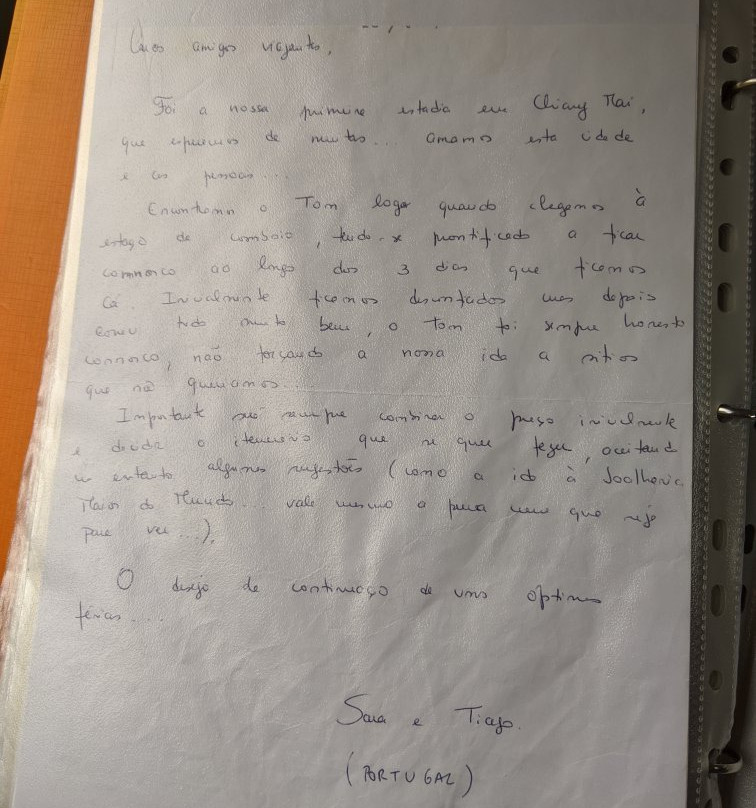 Caros amigos viajantes,
Foi a nossa primeira estadia em Chiang Mai,
que esperemos de muitas... amamos esta cidade
e as pessoas...
Encontramos o Tom logo quando chegamos à
estação de comboio, tendo-se prontificado a ficar
connosco ao longo dos 3 dias que ficamos
cá. Inicialmente ficamos desconfiados mas depois
correu tudo muito bem, o Tom foi sempre honesto
connosco, não forçando a nossa ida a sítios
que não queriamos...
Importante será sempre combinar o preço inicialmente
e decidir o itenerário que se quer fazer, aceitando
no entanto algumas sugestões (como a ida à Joalharia
Maior do Mundo... vale mesmo a pena nem que seja
para ver...).
O desejo de continuação de umas óptimas
férias...
Sara e Tiago.
(PORTUGAL)